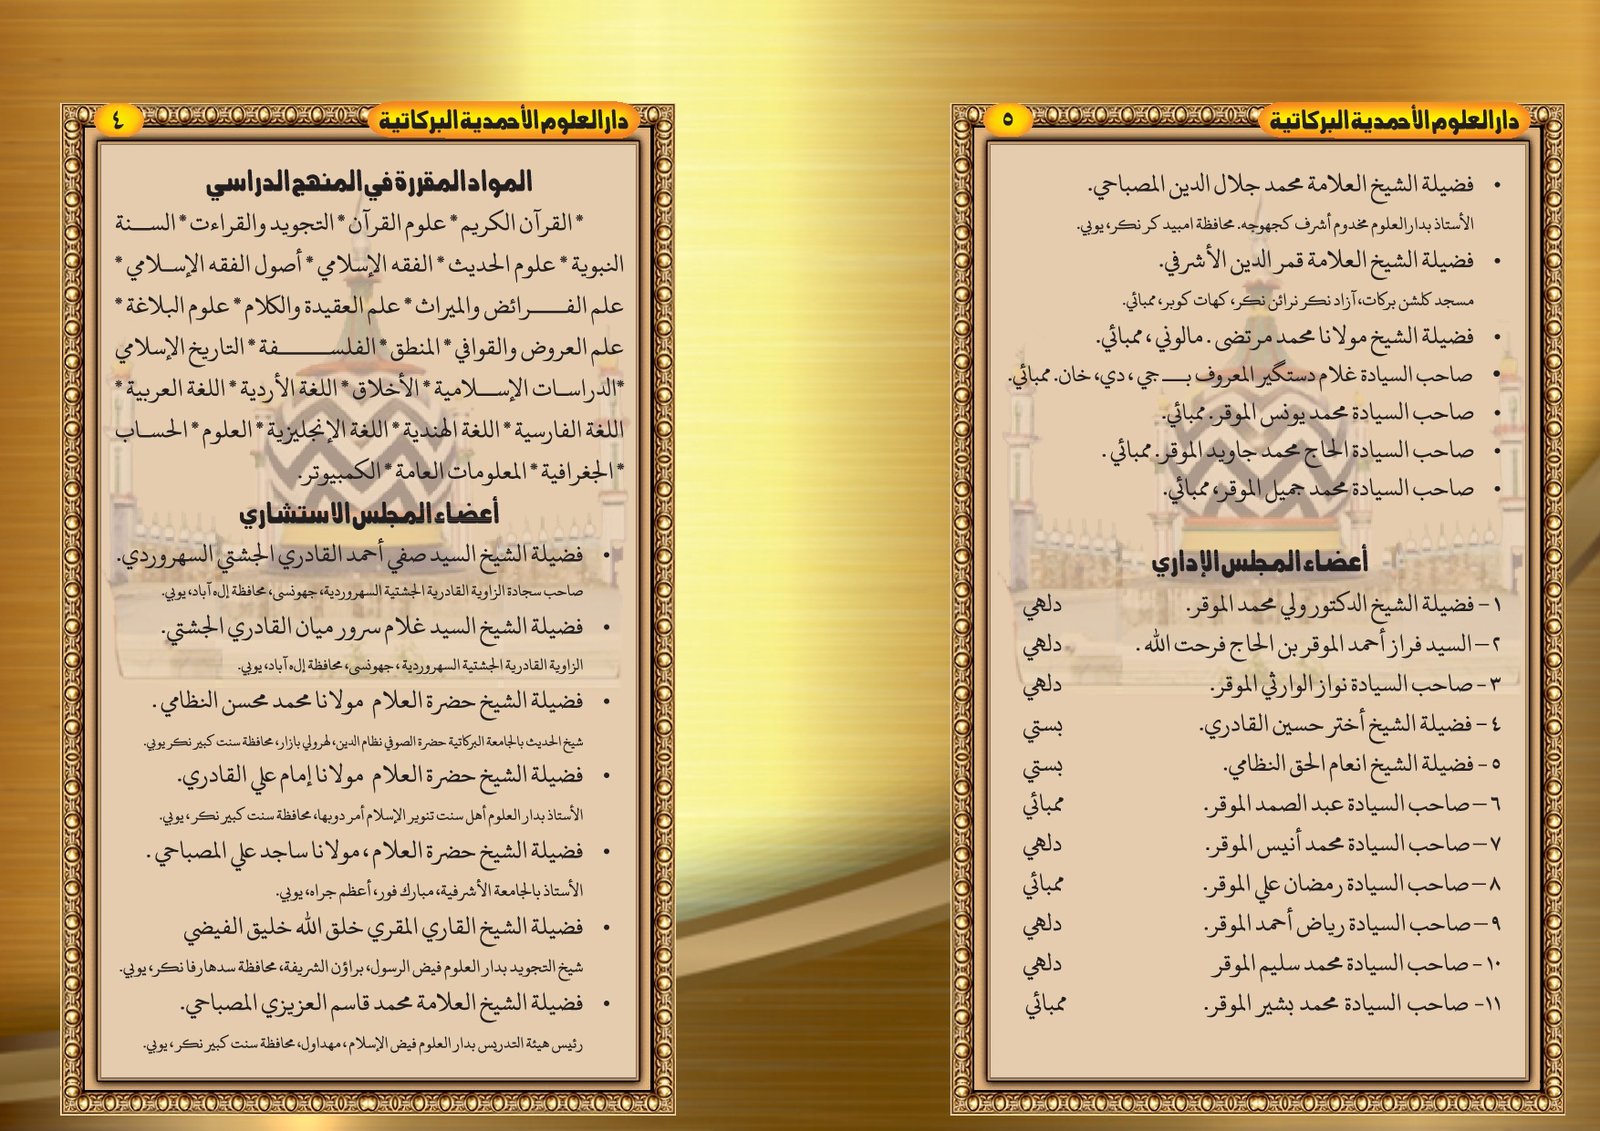 دارالعلوم الأحمدية البركاتية
٤
المواد المقررة في المنهج الدراسي
* القرآن الكريم * علوم القرآن * التجويد والقراءت * السنة
النبوية * علوم الحديث * الفقه الإسلامي * أصول الفقه الإسلامي *
علم الفرائض والميراث * علم العقيدة والكلام * علوم البلاغة *
علم العروض والقوافي * المنطق * الفلسفة * التاريخ الإسلامي
*الدراسات الإسلامية * الأخلاق * اللغة الأردية * اللغة العربية *
اللغة الفارسية * اللغة الهندية * اللغة الإنجليزية * العلوم * الحساب
* الجغرافية * المعلومات العامة * الكمبيوتر.
أعضاء المجلس الاستشاري
• فضيلة الشيخ السيد صفي أحمد القادري الجشتي السهروردي.
صاحب سجادة الزاوية القادرية الجشتية السهروردية، جهونسی، محافظة إله آباد، يوبي.
• فضيلة الشيخ السيد غلام سرور ميان القادري الجشتي.
الزاوية القادرية الجشتية السهروردية، جهونسی، محافظة إله آباد، يوبي.
• فضيلة الشيخ حضرة العلام مولانا محمد محسن النظامي.
شيخ الحديث بالجامعة البركاتية حضرة الصوفي نظام الدين، لهرولي بازار، محافظة سنت كبير نكر يوبي.
• فضيلة الشيخ حضرة العلام مولانا إمام علي القادري.
الأستاذ بدار العلوم أهل سنت تنوير الإسلام أمر دوبها، محافظة سنت كبير نكر، يوبي.
• فضيلة الشيخ حضرة العلام، مولانا ساجد علي المصباحي.
الأستاذ بالجامعة الأشرفية، مبارك فور، أعظم جراه، يوبي.
• فضيلة الشيخ القاري المقري خلق الله خليق الفيضي
شيخ التجويد بدار العلوم فيض الرسول، براؤن الشريفة، محافظة سدهارفا نكر، يوبي.
• فضيلة الشيخ العلامة محمد قاسم العزيزي المصباحي.
رئيس هيئة التدريس بدار العلوم فيض الإسلام، مهداول، محافظة سنت كبير نكر، يوبي.
دارالعلوم الأحمدية البركاتية
٥
• فضيلة الشيخ العلامة محمد جلال الدين المصباحي.
الأستاذ بدار العلوم مخدوم أشرف كجهوجه. محافظة امبيد كر نكر، يوبي.
• فضيلة الشيخ العلامة قمر الدين الأشرفي.
مسجد كلشن بركات، آزاد نكر نرائن نكر، كهات كوبر، ممبائي.
• فضيلة الشيخ مولانا محمد مرتضى. مالوني، ممبائي.
• صاحب السيادة غلام دستگير المعروف بـ جي، دي، خان. ممبائي.
• صاحب السيادة محمد يونس الموقر. ممبائي.
• صاحب السيادة الحاج محمد جاويد الموقر. ممبائي.
• صاحب السيادة محمد جميل الموقر، ممبائي.
أعضاء المجلس الإداري
١- فضيلة الشيخ الدكتور ولي محمد الموقر. دلهي
٢- السيد فراز أحمد الموقر بن الحاج فرحت الله. دلهي
٣- صاحب السيادة نواز الوارثي الموقر. دلهي
٤- فضيلة الشيخ أختر حسين القادري. بستي
٥- فضيلة الشيخ انعام الحق النظامي. بستي
٦- صاحب السيادة عبد الصمد الموقر. ممبائي
٧- صاحب السيادة محمد أنيس الموقر. دلهي
٨- صاحب السيادة رمضان علي الموقر. ممبائي
٩- صاحب السيادة رياض أحمد الموقر. دلهي
١٠- صاحب السيادة محمد سليم الموقر دلهي
١١- صاحب السيادة محمد بشير الموقر. ممبائي